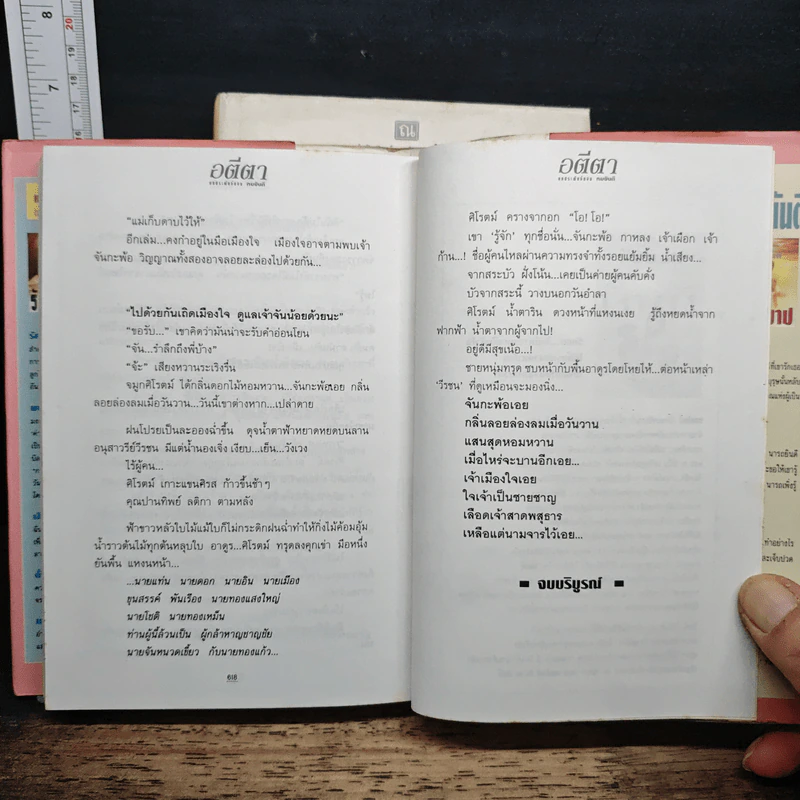 ณ
อตีตา
"แม่เก็บดาบไว้ให้"
อีกเล่ม...คงกำอยู่ในมือเมืองใจ เมืองใจอาจตามพบเจ้า
จันกะพ้อ วิญญาณทั้งสองอาจลอยละล่องไปด้วยกัน...
"ไปด้วยกันเถิดเมืองใจ ดูแลเจ้าจันน้อยด้วยนะ"
"ขอรับ..." เขาคิดว่ามันน่าจะรับคำอ่อนโยน
"จัน...รำลึกถึงพี่บ้าง"
"จ้ะ" เสียงหวานระเริงรื่น
จมูกศิโรตม์ ได้กลิ่นดอกไม้หอมหวาน...จันกะพ้อเอย กลิ่น
ลอยล่องลมเมื่อวันวาน...วันนี้เขาต่างหาก...เปล่าดาย
ฝนโปรยเป็นละอองฉ่ำขึ้น ดุจน้ำตาฟ้าหยาดหยดบนลาน
อนุสาวรีย์วีรชน มีแต่น้ำนองเจิ่ง เงียบ...เย็น...วังเวง
ไร้ผู้คน...
ศิโรตม์ เกาะแขนศิรส ก้าวขึ้นช้าๆ
คุณปานทิพย์ ลติกา ตามหลัง
ฟ้าขาวหลัวใบไม้แม้ใบก็ไม่กระดิกฝนฉ่ำทำให้กิ่งไม้ค้อมอุ้ม
น้ำราวต้นไม้ทุกต้นหลุบใบ อาดูร...ศิโรตม์ ทรุดลงคุกเข่า มือหนึ่ง
ยันพื้น แหงนหน้า...
...นายแท่น นายดอก นายอิน นายเมือง
ขุนสรรค์ พันเรือง นายทองแสงใหญ่
นายโชติ นายทองเหม็น
ท่านผู้นี้ล้วนเป็น ผู้กล้าหาญชาญชัย
นายจันหนวดเขี้ยว กับนายทองแก้ว...
อตีตา
ศิโรตม์ ครางจากอก "โอ! โอ!"
เขา 'รู้จัก' ทุกชื่อนั่น...จันกะพ้อ กาหลง เจ้าเผือก เจ้า
ก้าน...! ชื่อผู้คนไหลผ่านความทรงจำทั้งรอยแย้มยิ้ม น้ำเสียง...
จากสระบัว ฝั่งโน้น...เคยเป็นค่ายผู้คนคับคั่ง
บัวจากสระนี้ วางบนอกวันอำลา
ศิโรตม์ น้ำตาริน ดวงหน้าที่แหงนเงย รู้ถึงหยดน้ำจาก
ฟากฟ้า น้ำตาจากผู้จากไป!
อยู่ดีมีสุขเน้อ...!
ชายหนุ่มทรุด ซบหน้ากับพื้นอาดูรโดยโหยไห้...ต่อหน้าเหล่า
'วีรชน' ที่ดูเหมือนจะมองนิ่ง...
จันกะพ้อเอย
กลิ่นลอยล่องลมเมื่อวันวาน
แสนสุดหอมหวาน
เมื่อไหร่จะบานอีกเอย...
เจ้าเมืองใจเอย
ใจเจ้าเป็นชายชาญ
เลือดเจ้าสาดพสุธาร
เหลือแต่นามจารไว้เอย...
จบบริบูรณ์